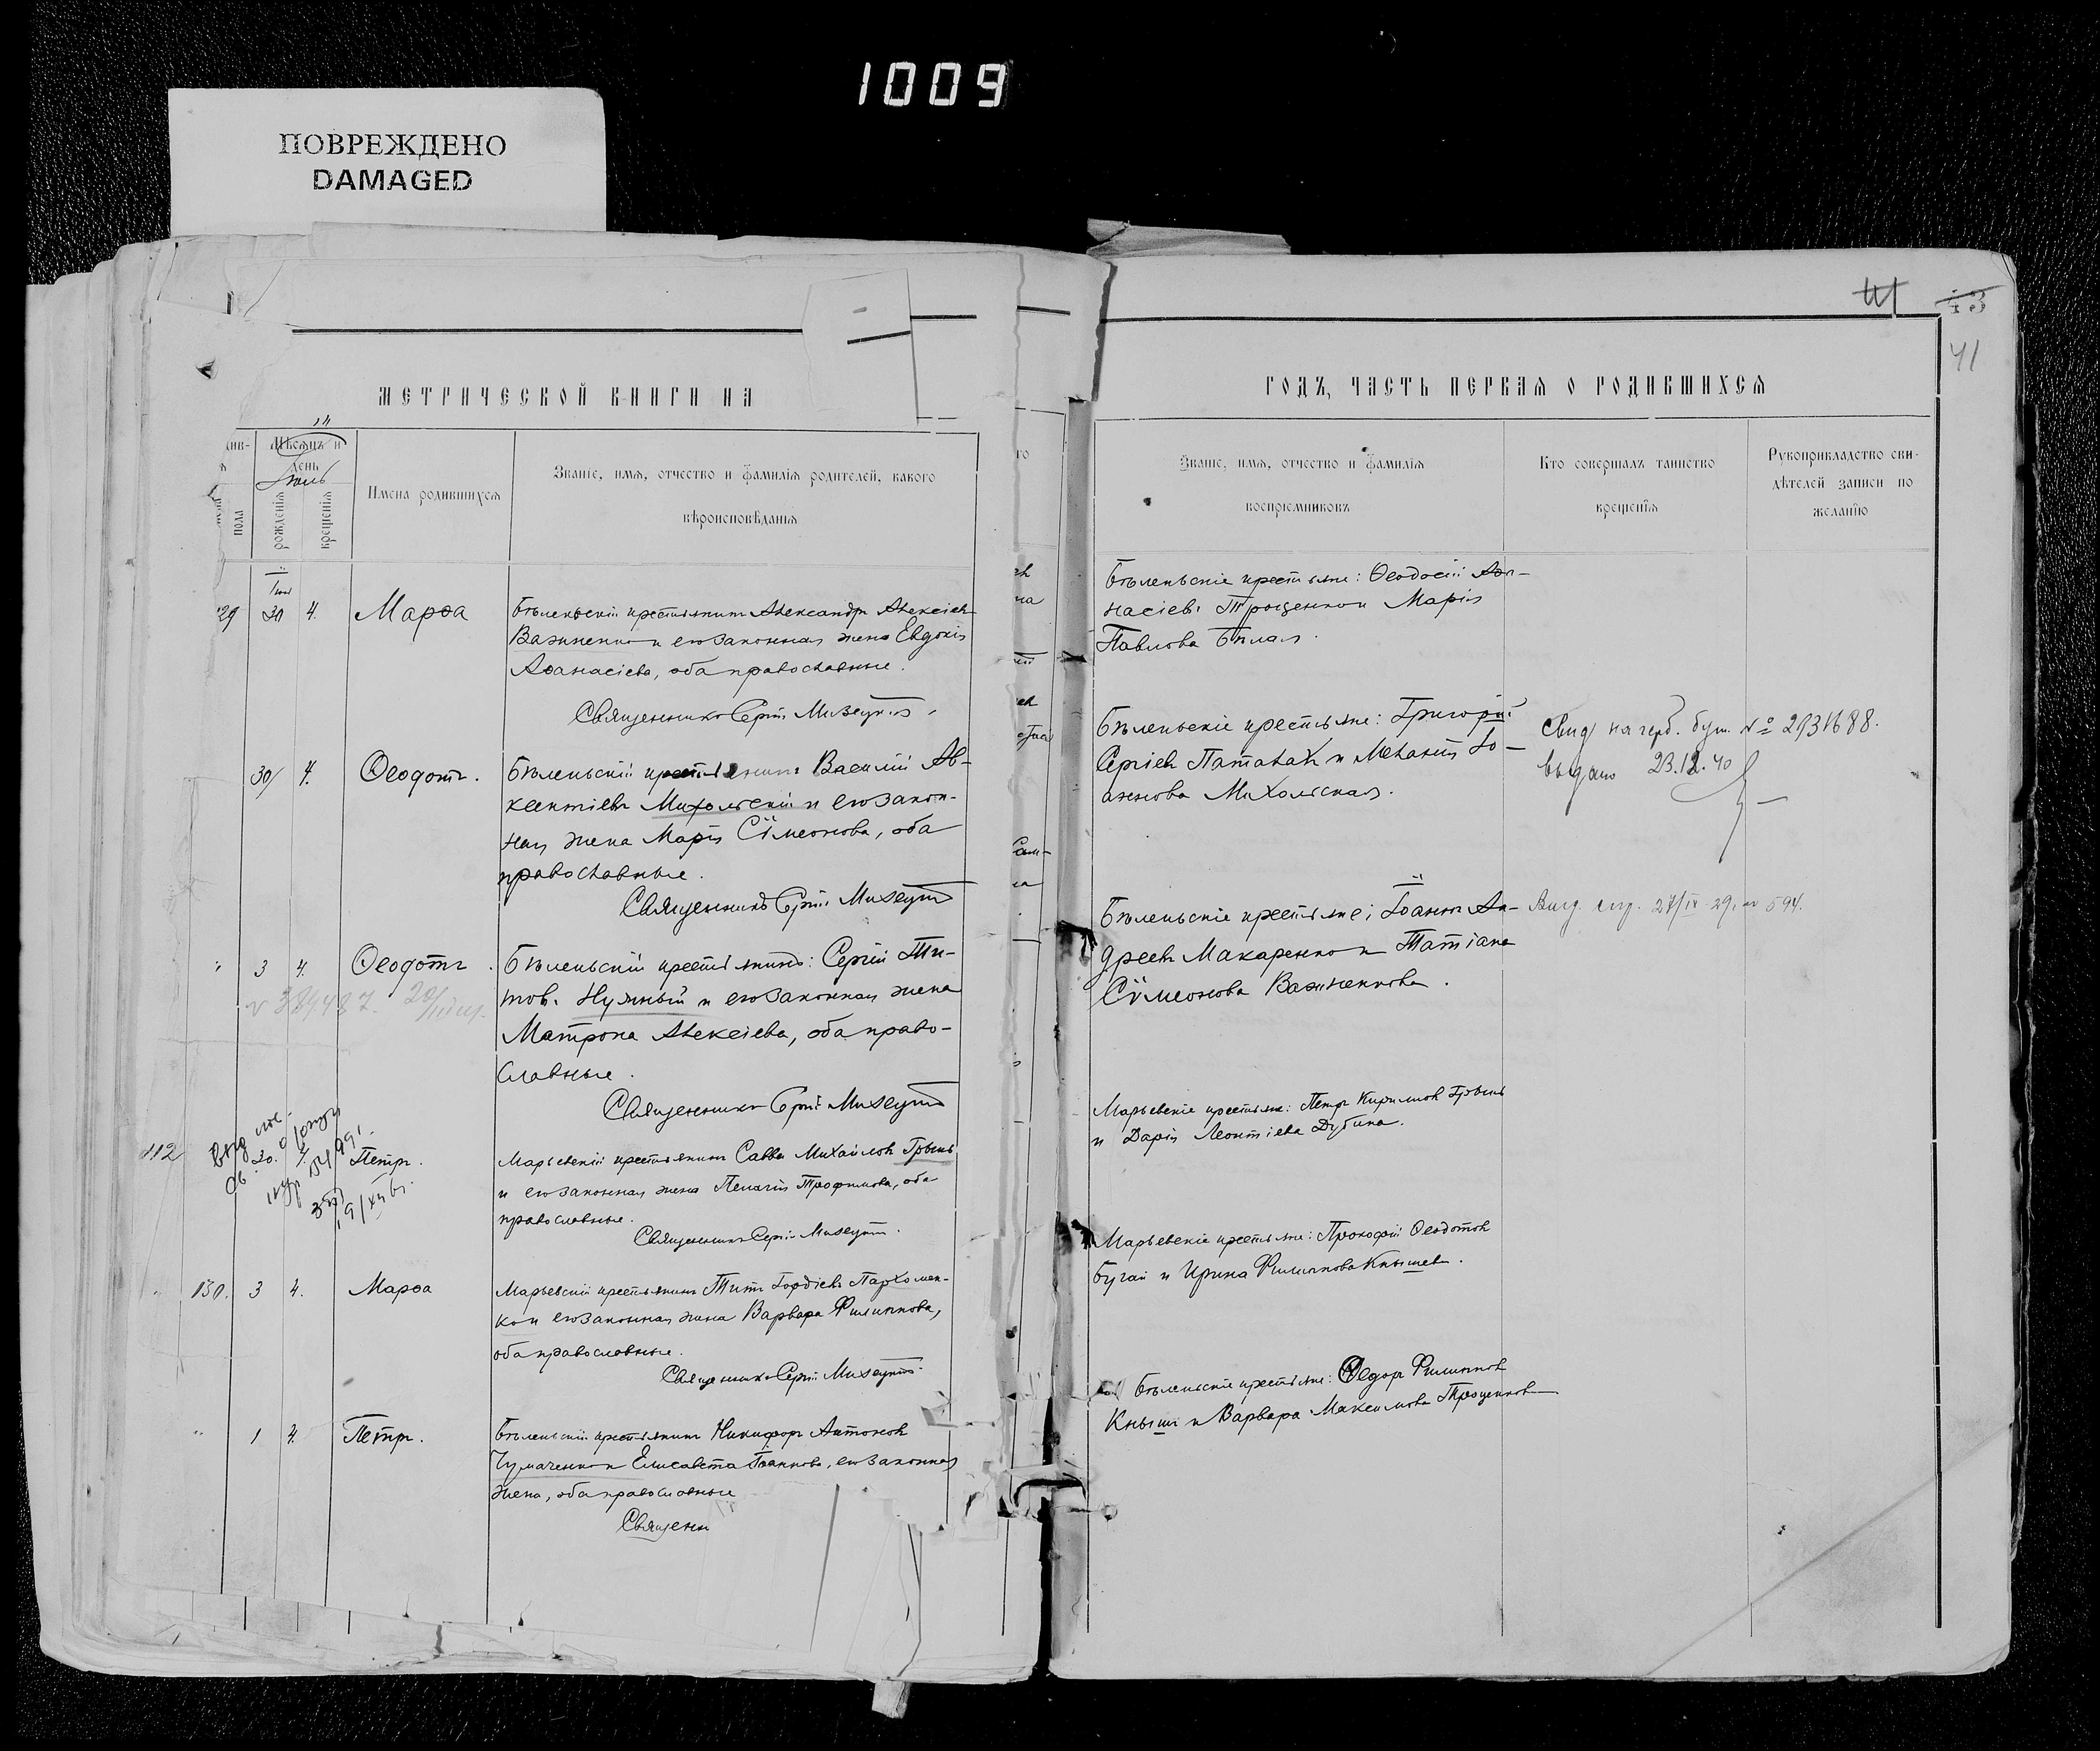 1009
ПОВРЕЖДЕНО
DAMAGED
МЕТРИЧЕСКОЙ КНИГИ НА
Мѣсяцъ и
день
рожденія
крещенія
пола
Имена родившихся
Званіе, имя, отчество и фамилія родителей, какого
вѣроисповѣданія
29 30 4. Марѳа
Бѣленьскій крестьянинъ Александръ Алексіевъ
Важненко и его законная жена Евдокія
Аѳанасіева, оба православные.
Священникъ Сергій
30 4. Ѳеодотъ.
Бѣленьскій крестьянинъ Василій Ав-
кентіевъ Михольскій и его закон-
ная жена Марія Сѵмеонова, оба
православные.
Священникъ Сергій
" 3 4. Ѳеодотъ.
Бѣленьскій крестьянинъ: Сергій Ти-
товъ Нужный и его законная жена
Матрона Алексіева, оба право-
славные.
Священникъ Сергій
112 30. 4. Петръ.
Марьевскій крестьянинъ Савва Михайловъ
и его законная жена Пелагія Трофимова, оба
православные.
Священникъ Сергій
130. 3 4. Марѳа
Марьевскій крестьянинъ Титъ Гордіевъ Пархомен-
ко и его законная жена Варвара Филиппова,
оба православные.
Священникъ Сергій
" 1 4. Петръ.
Бѣленьскій крестьянинъ Никифоръ Антоновъ
Чумаченко и Елисавета Іоаннова, его законная
жена, оба православные
Священн
41
ГОДЪ, ЧАСТЬ ПЕРВАЯ О РОДИВШИХСЯ
Званіе, имя, отчество и фамилія
воспріемниковъ
Кто совершалъ таинство
крещенія
Рукоприкладство сви-
дѣтелей записи по
желанію
Бѣленьскіе крестьяне: Ѳеодосій Аѳа-
насіевъ Троценко и Марія
Павлова Бѣлая.
Бѣленьскіе крестьяне: Григорій
Сергіевъ Паталахъ и Меланія Іо-
аннова Михольская.
Свид на герб. бум. № 2931688.
выдано 23.12.40
Бѣленьскіе крестьяне: Іоаннъ Ан-
дреевъ Макаренко и Татіана
Сѵмеонова Важненкова.
Выд. 27/IV 29. № 594.
Марьевскіе крестьяне: Петръ Кирилловъ
и Дарія Леонтіева Дубина.
Марьевскіе крестьяне: Прокофій Ѳеодотовъ
Бугай и Ирина Филиппова Кнышева.
Бѣленьскіе крестьяне: Ѳедоръ Филипповъ
Кнышъ и Варвара Максимова Троценкова